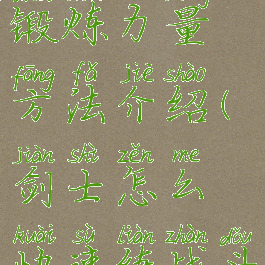 锻炼力量
fāng fǎ jiè shào
方法介绍(
jiàn shì zěn me
剑士怎么
kuài sù liàn zhàn dòu
快速练战斗